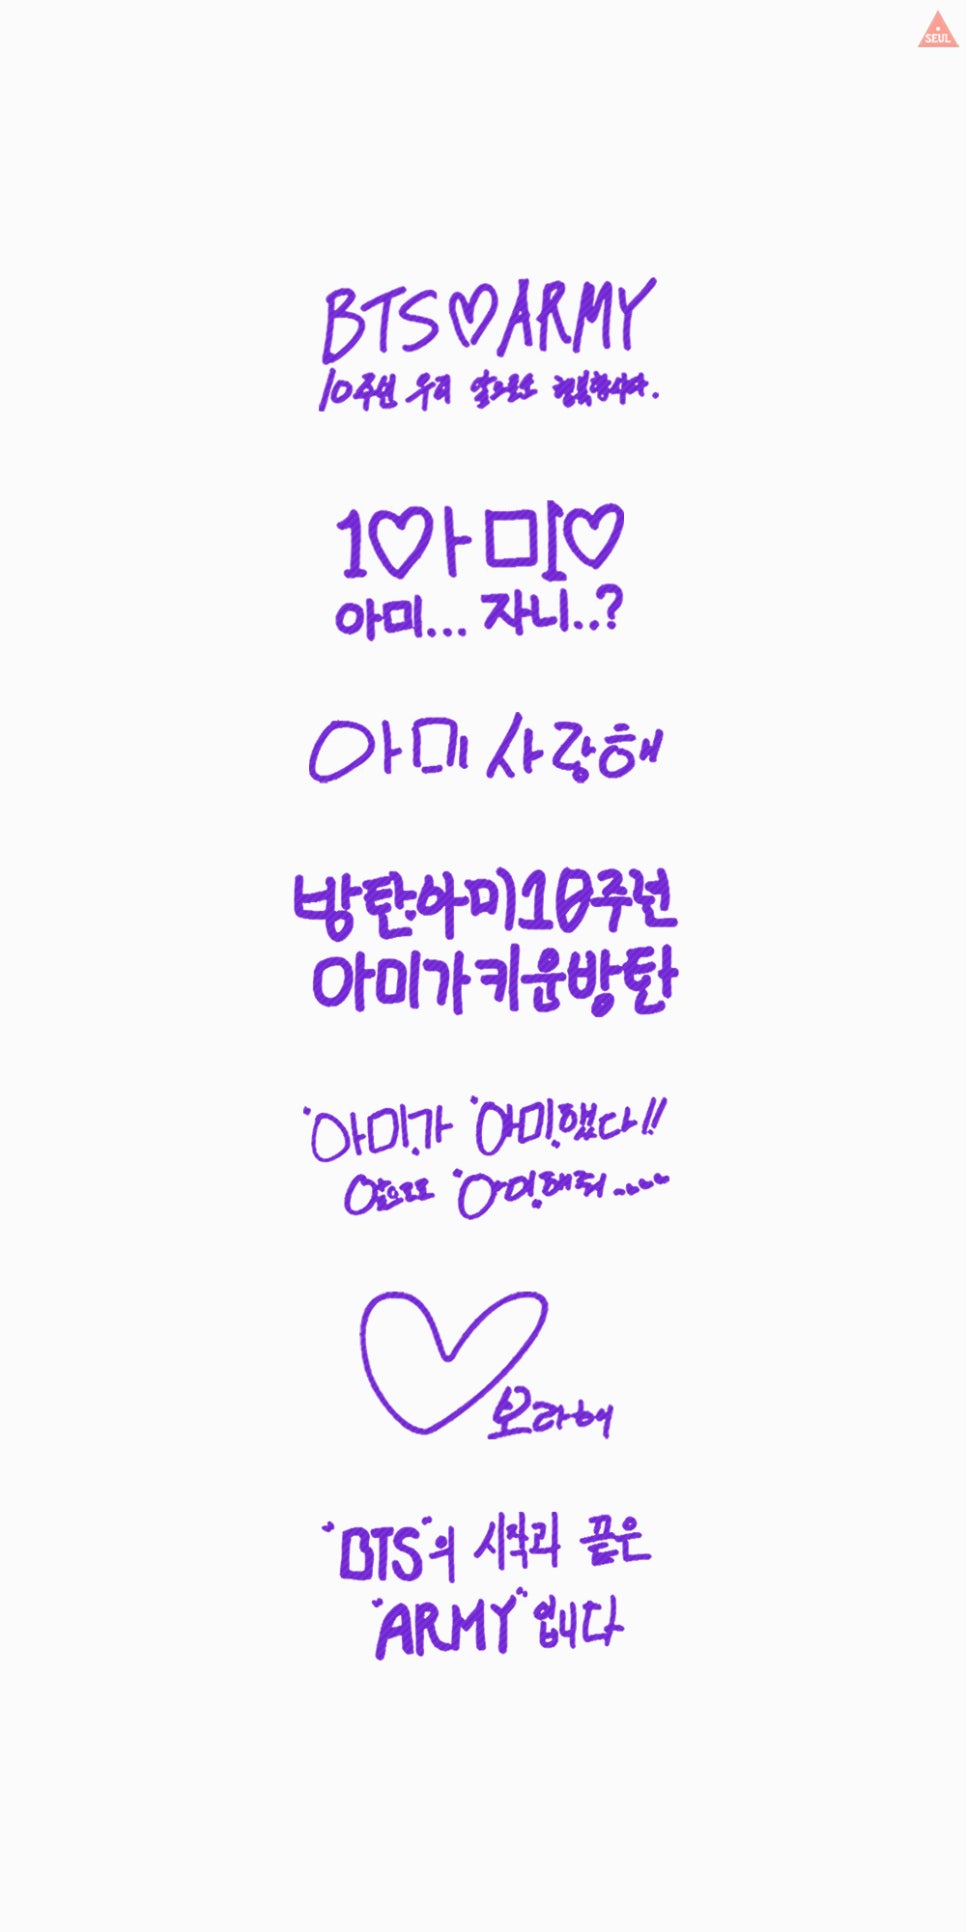 SEUL
BTS♡ARMY
10주년 우리 앞으로도 행복합시다.
1♡아미♡
아미... 자니..?
아미 사랑해
방탄아미10주년
아미가키운방탄
"아미"가 "아미"했다!!
앞으로도 "아미"해줘....
♡보라해
"BTS"의 시작과 끝은
"ARMY"입니다